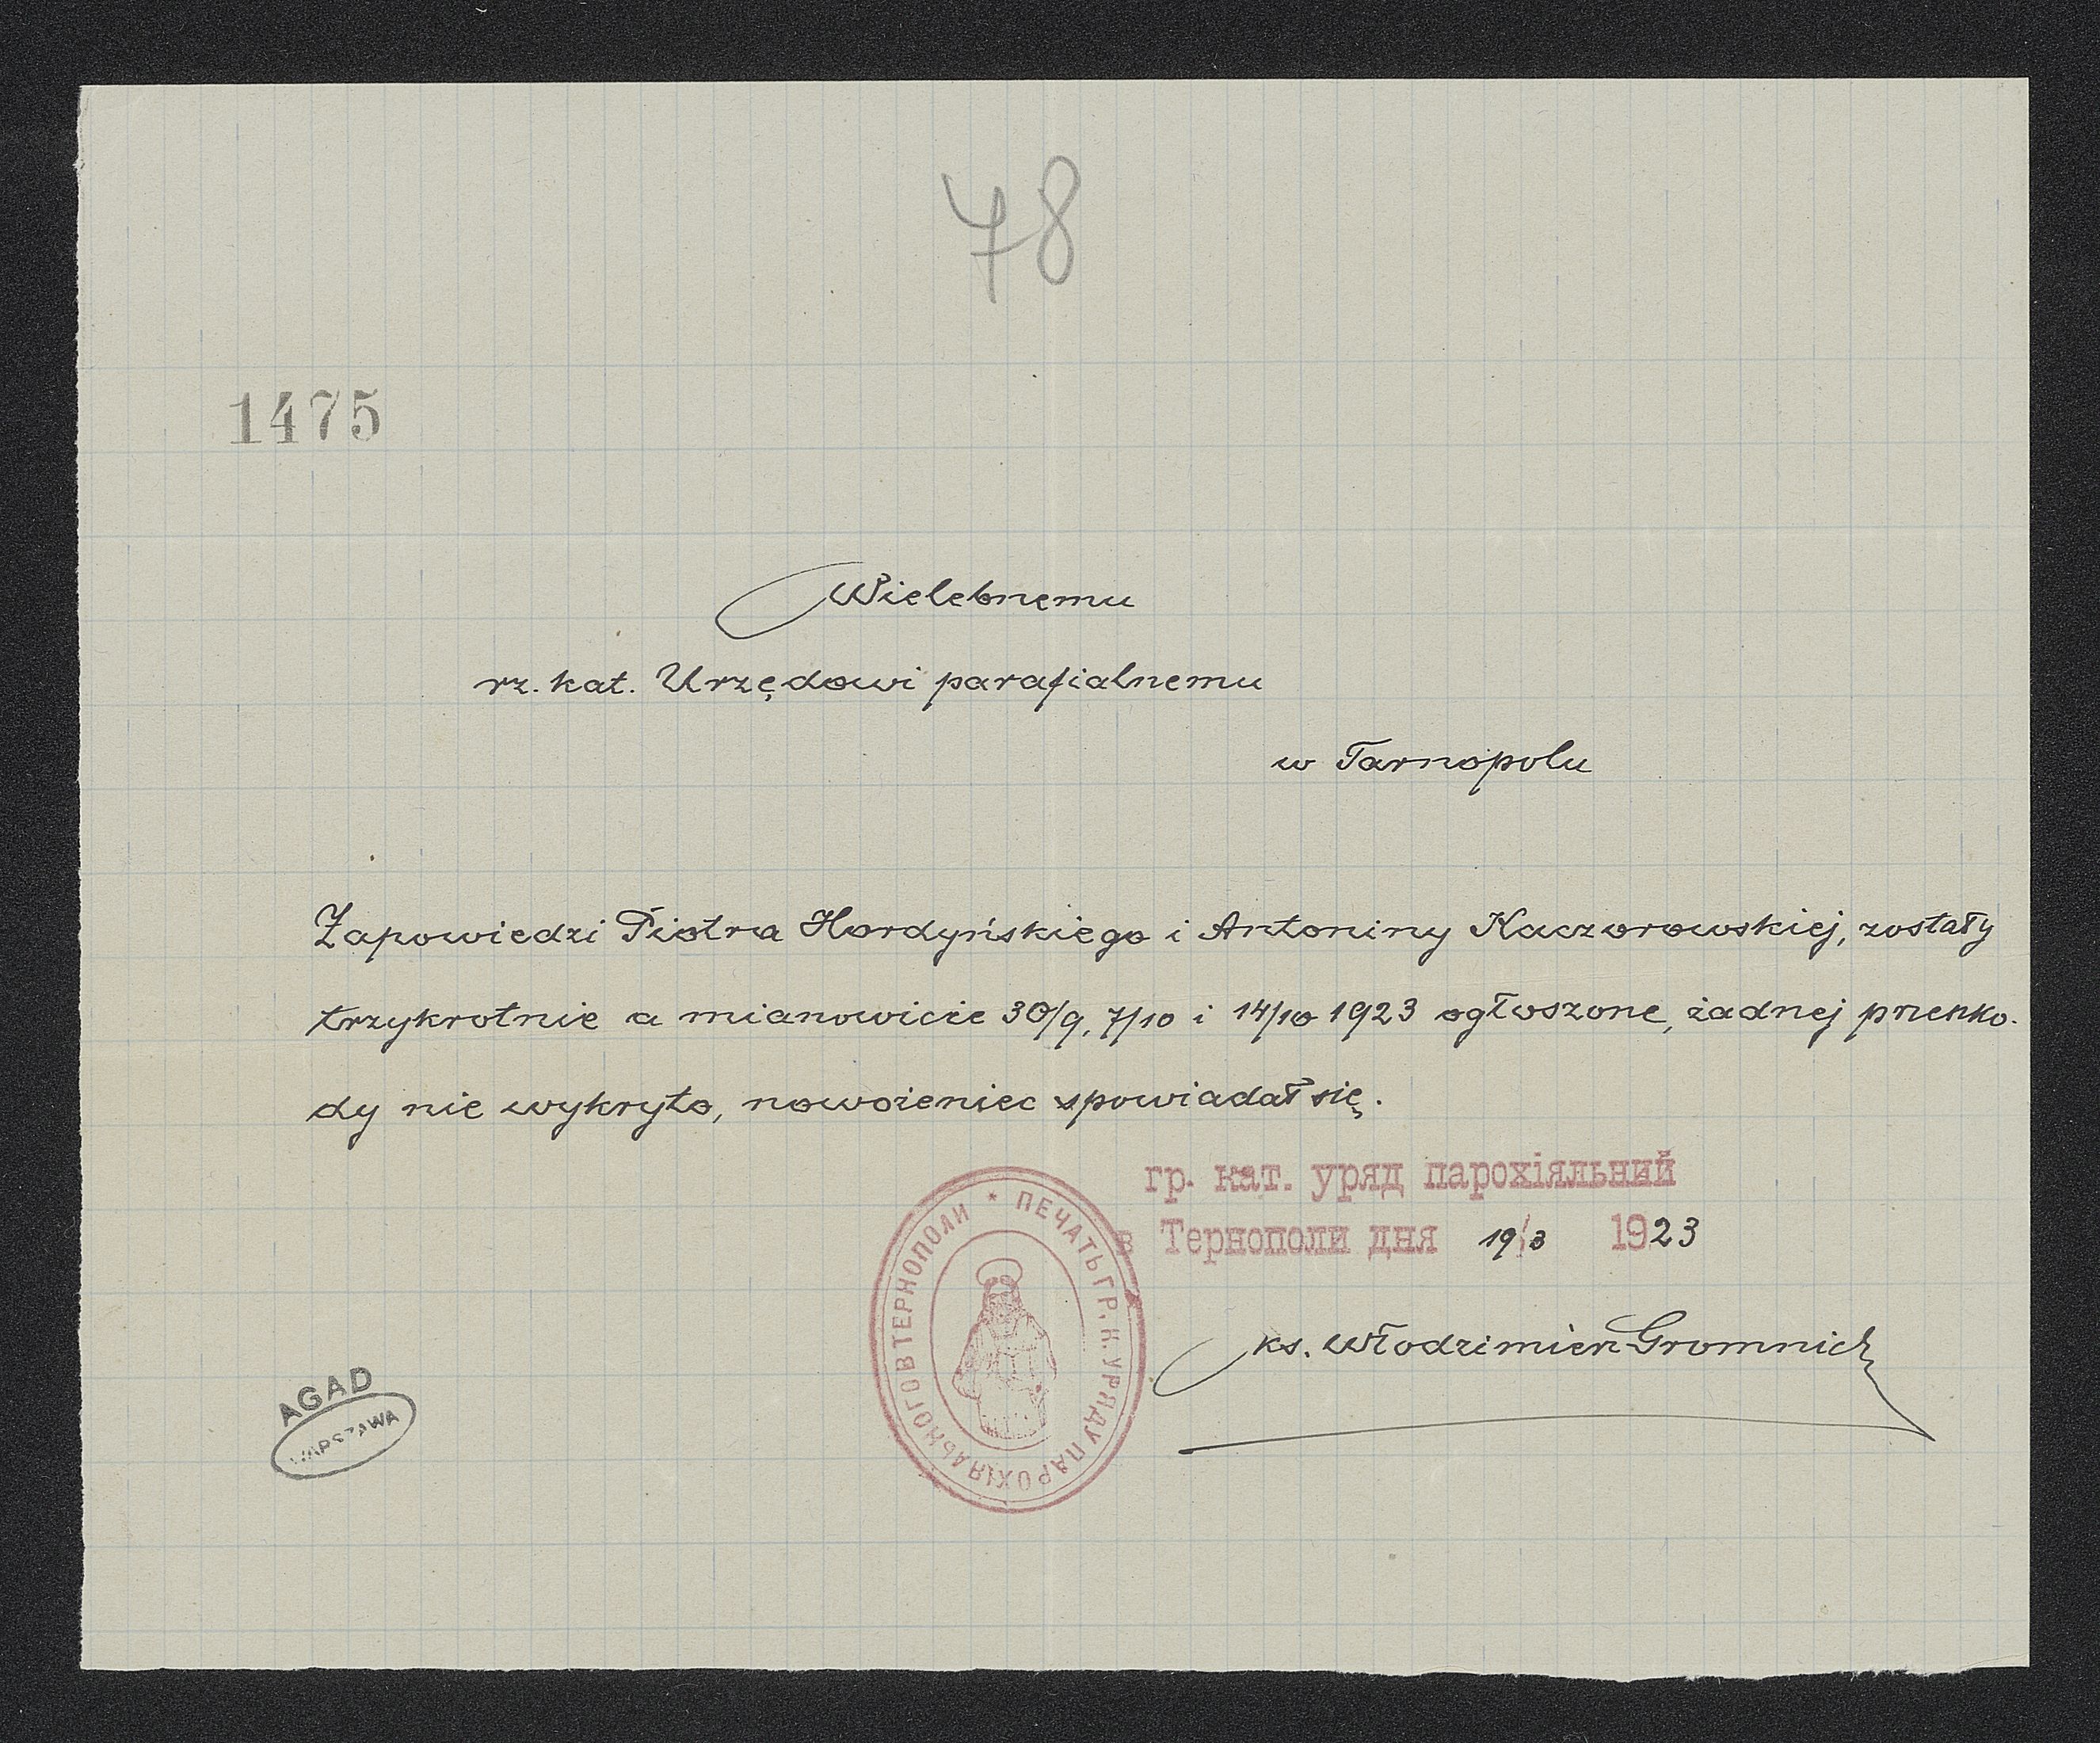 78
1475
Wielebnemu
rz. kat. Urzędowi parafialnemu
w Tarnopolu
Zapowiedzi Piotra Hordyńskiego i Antoniny Kaczorowskiej, zostały
trzykrotnie a mianowicie 30/9, 7/10 i 14/10 1923 ogłoszone, żadnej przeszko-
dy nie wykryto, nowożeniec spowiadał się.
гр. кат. уряд парохіяльний
в Тернополи дня 19/3 1923
* ПЕЧАТЬ ГР. К. УРЯДУ ПАРОХІЯЛЬНОГО В ТЕРНОПОЛИ
ks. Włodzimierz Gromnicki
AGAD
WARSZAWA